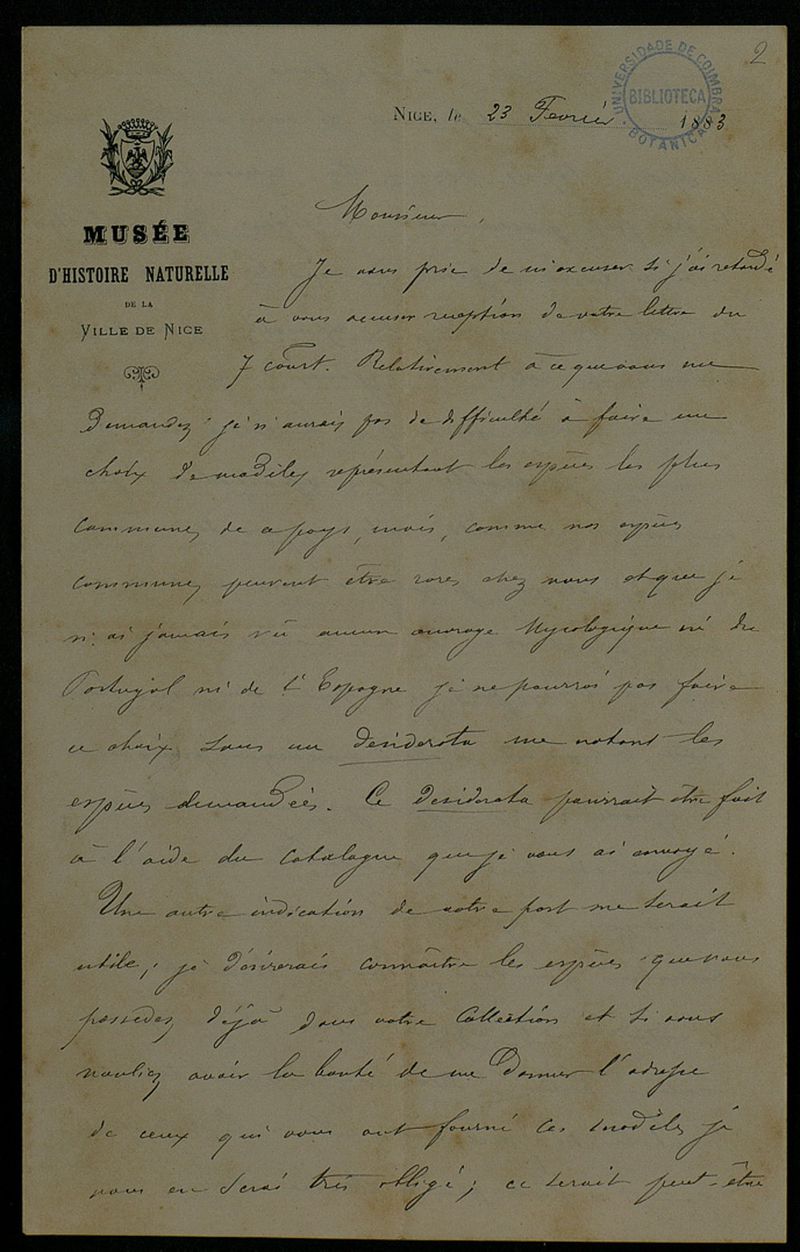 2
UNIVERSIDADE DE COIMBRA
BIBLIOTECA
BOTANICA
NICE, le 23 Fevrier 1883
MUSÉE
D'HISTOIRE NATURELLE
DE LA
VILLE DE NICE
Monsieur,
Je vous prie de m'excuser si j'ai retardé
à vous accuser reception de votre lettre du
7 court. Relativement à ce que vous me
demandez je n'aurais pas de difficulté à faire un
choix de modèles représentant les espèces les plus
communes de ce pays, mais, comme nos espèces
communes peuvent être rares chez vous et que je
n'ai jamais vû aucun ouvrage Mycologique ni du
Portugal ni de l'Espagne je ne pourrai pas faire
ce choix sans un desiderata me notant les
espèces demandées. Ce desiderata pourrait être fait
à l'aide du catalogue que je vous ai envoyé.
Une autre indication de votre part me serait
utile; je désirerais connaître les espèces que vous
possedez déjà dans votre Collection et si vous
vouliez avoir la bonté de me donner l'adresse
de ceux qui vous ont fourni ces modèles je
vous en serai très obligé; ce serait peut-être